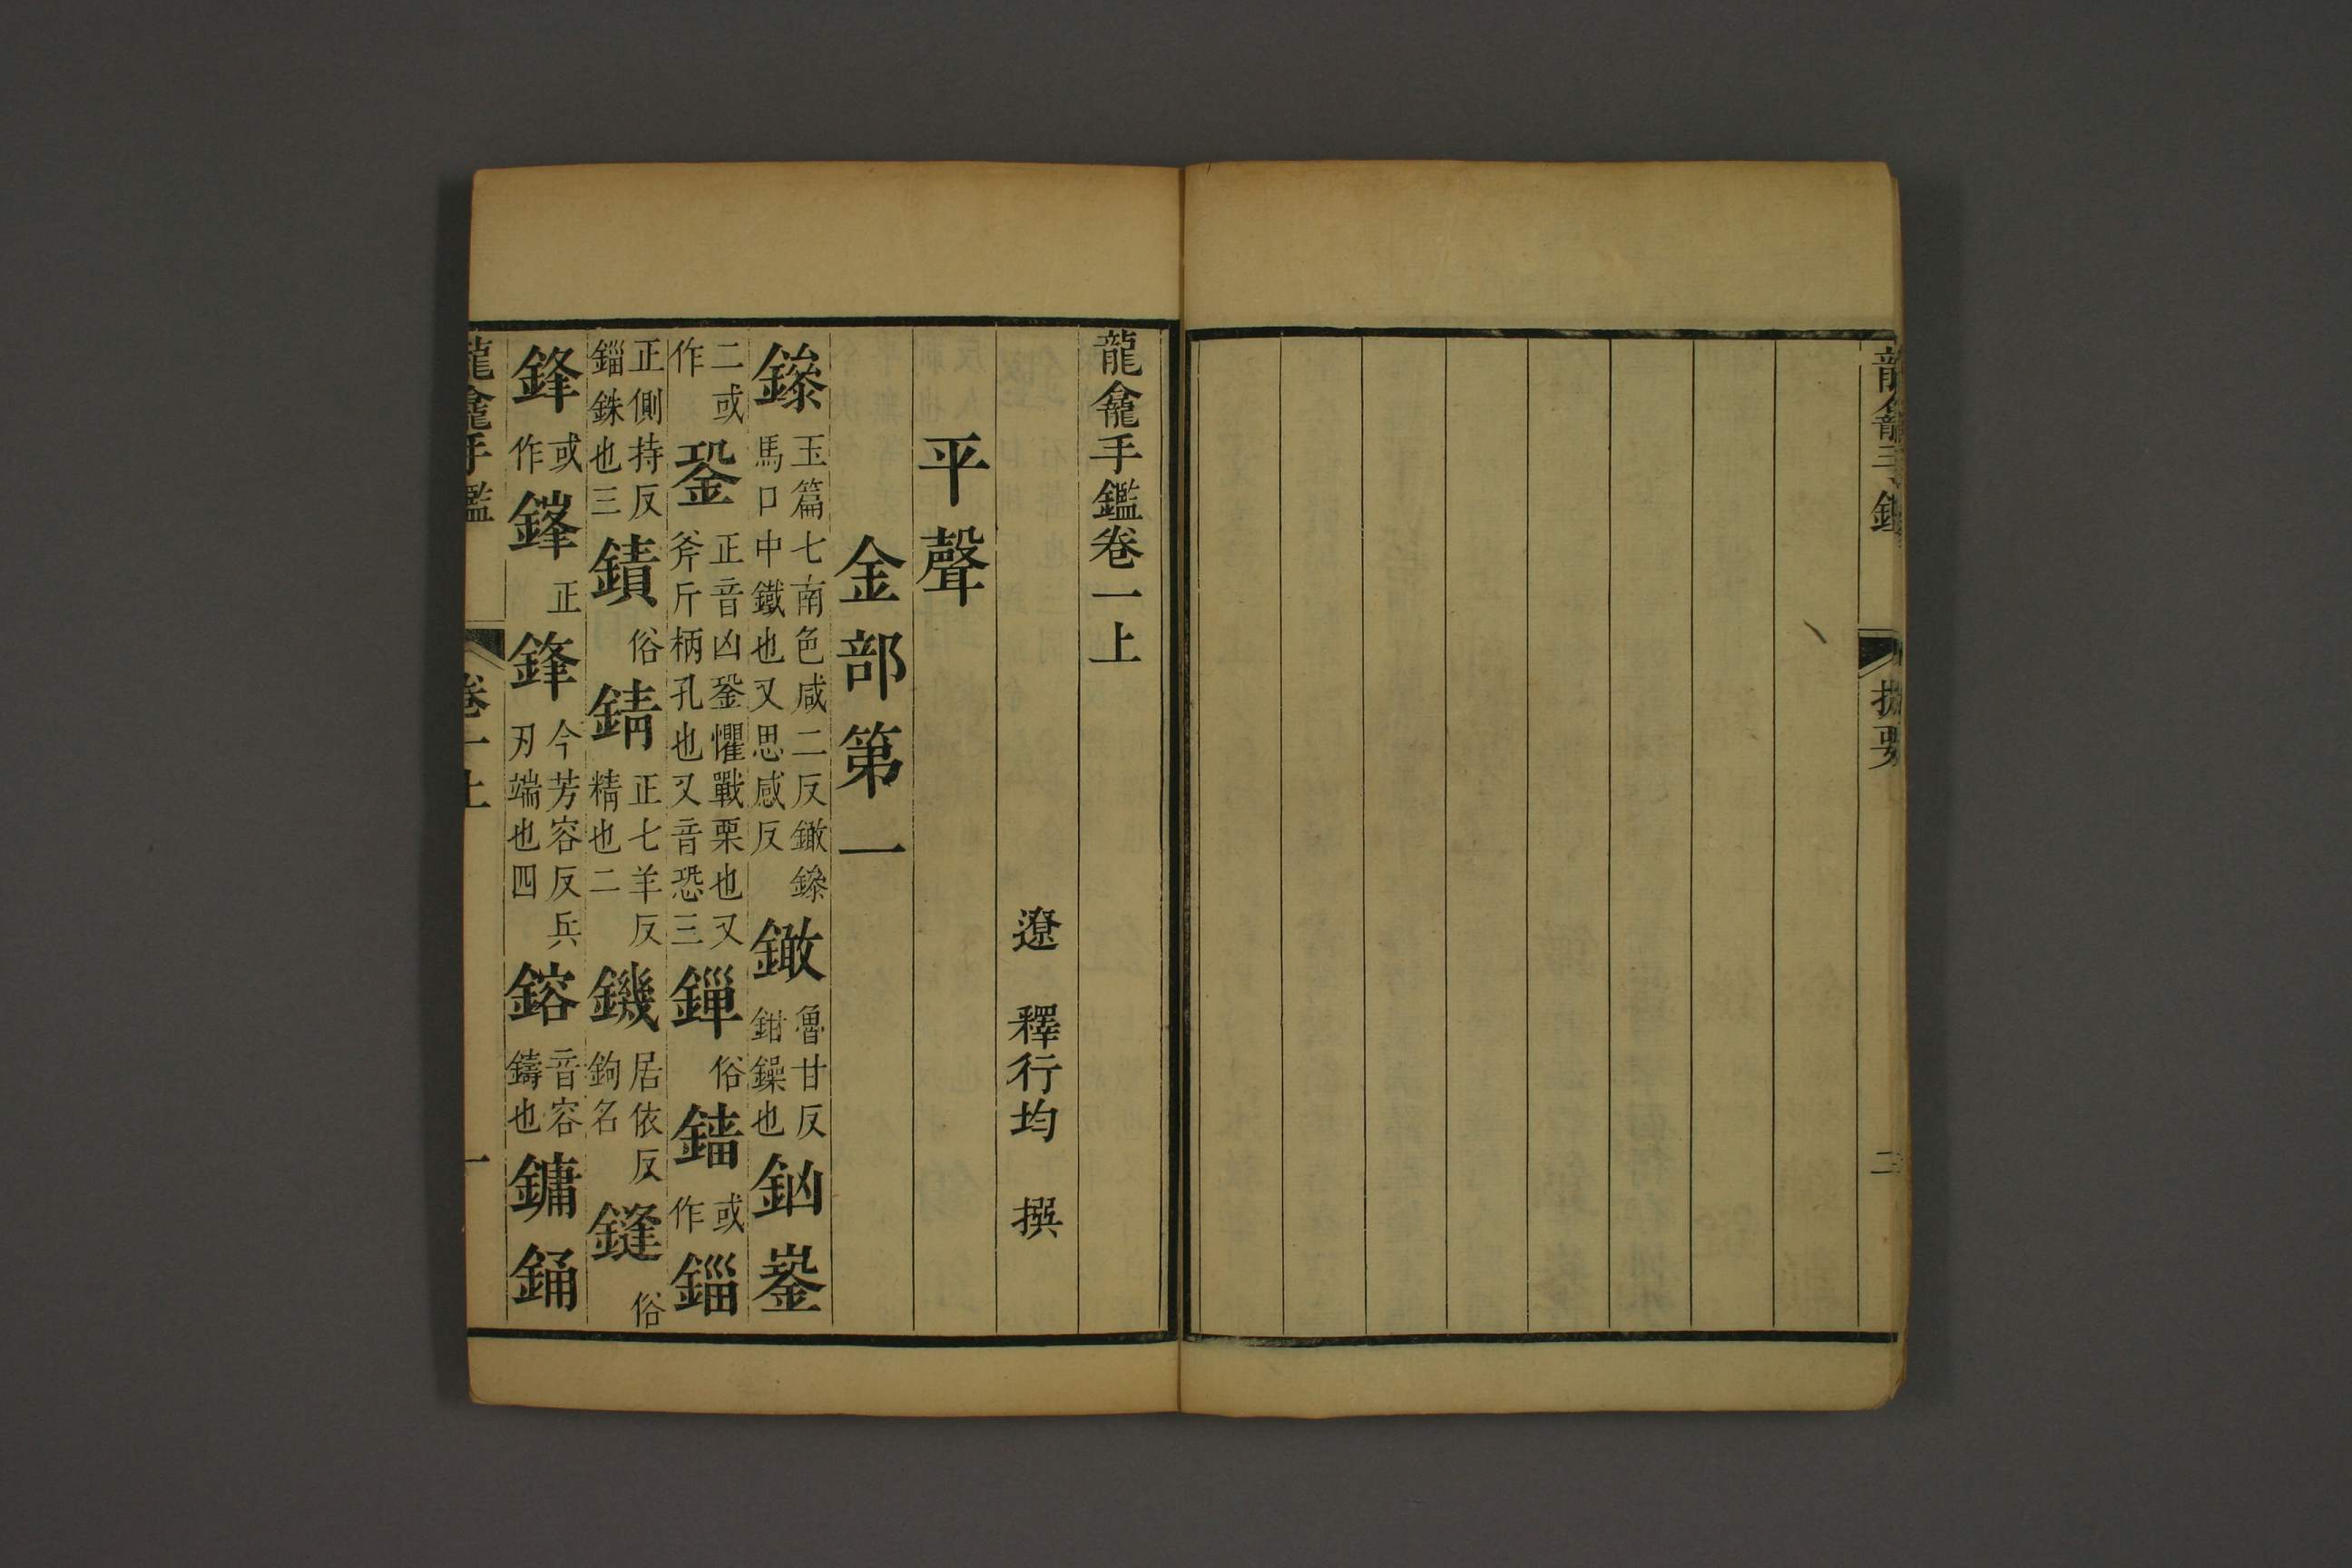 龍龕手鑑
提要
二
龍龕手鑑卷一上
遼 釋行均 撰
平聲
金部第一
鏒玉篇七南色咸二反鏾鏒馬口中鐵也又思感反鏾魯甘反鉗鏁也䤗銎
二或作銎正音凶銎懼戰栗也又斧斤柄孔也又音恐三鍿俗鍿或作錙
正側持反錙銖也三錆俗錆正七羊反精也二鐖居依反鉤名鏠俗
鋒或作鏠正鋒今芳容反兵刃端也四鎔音容鑄也鏞銿
龍龕手鑑
卷一上
一